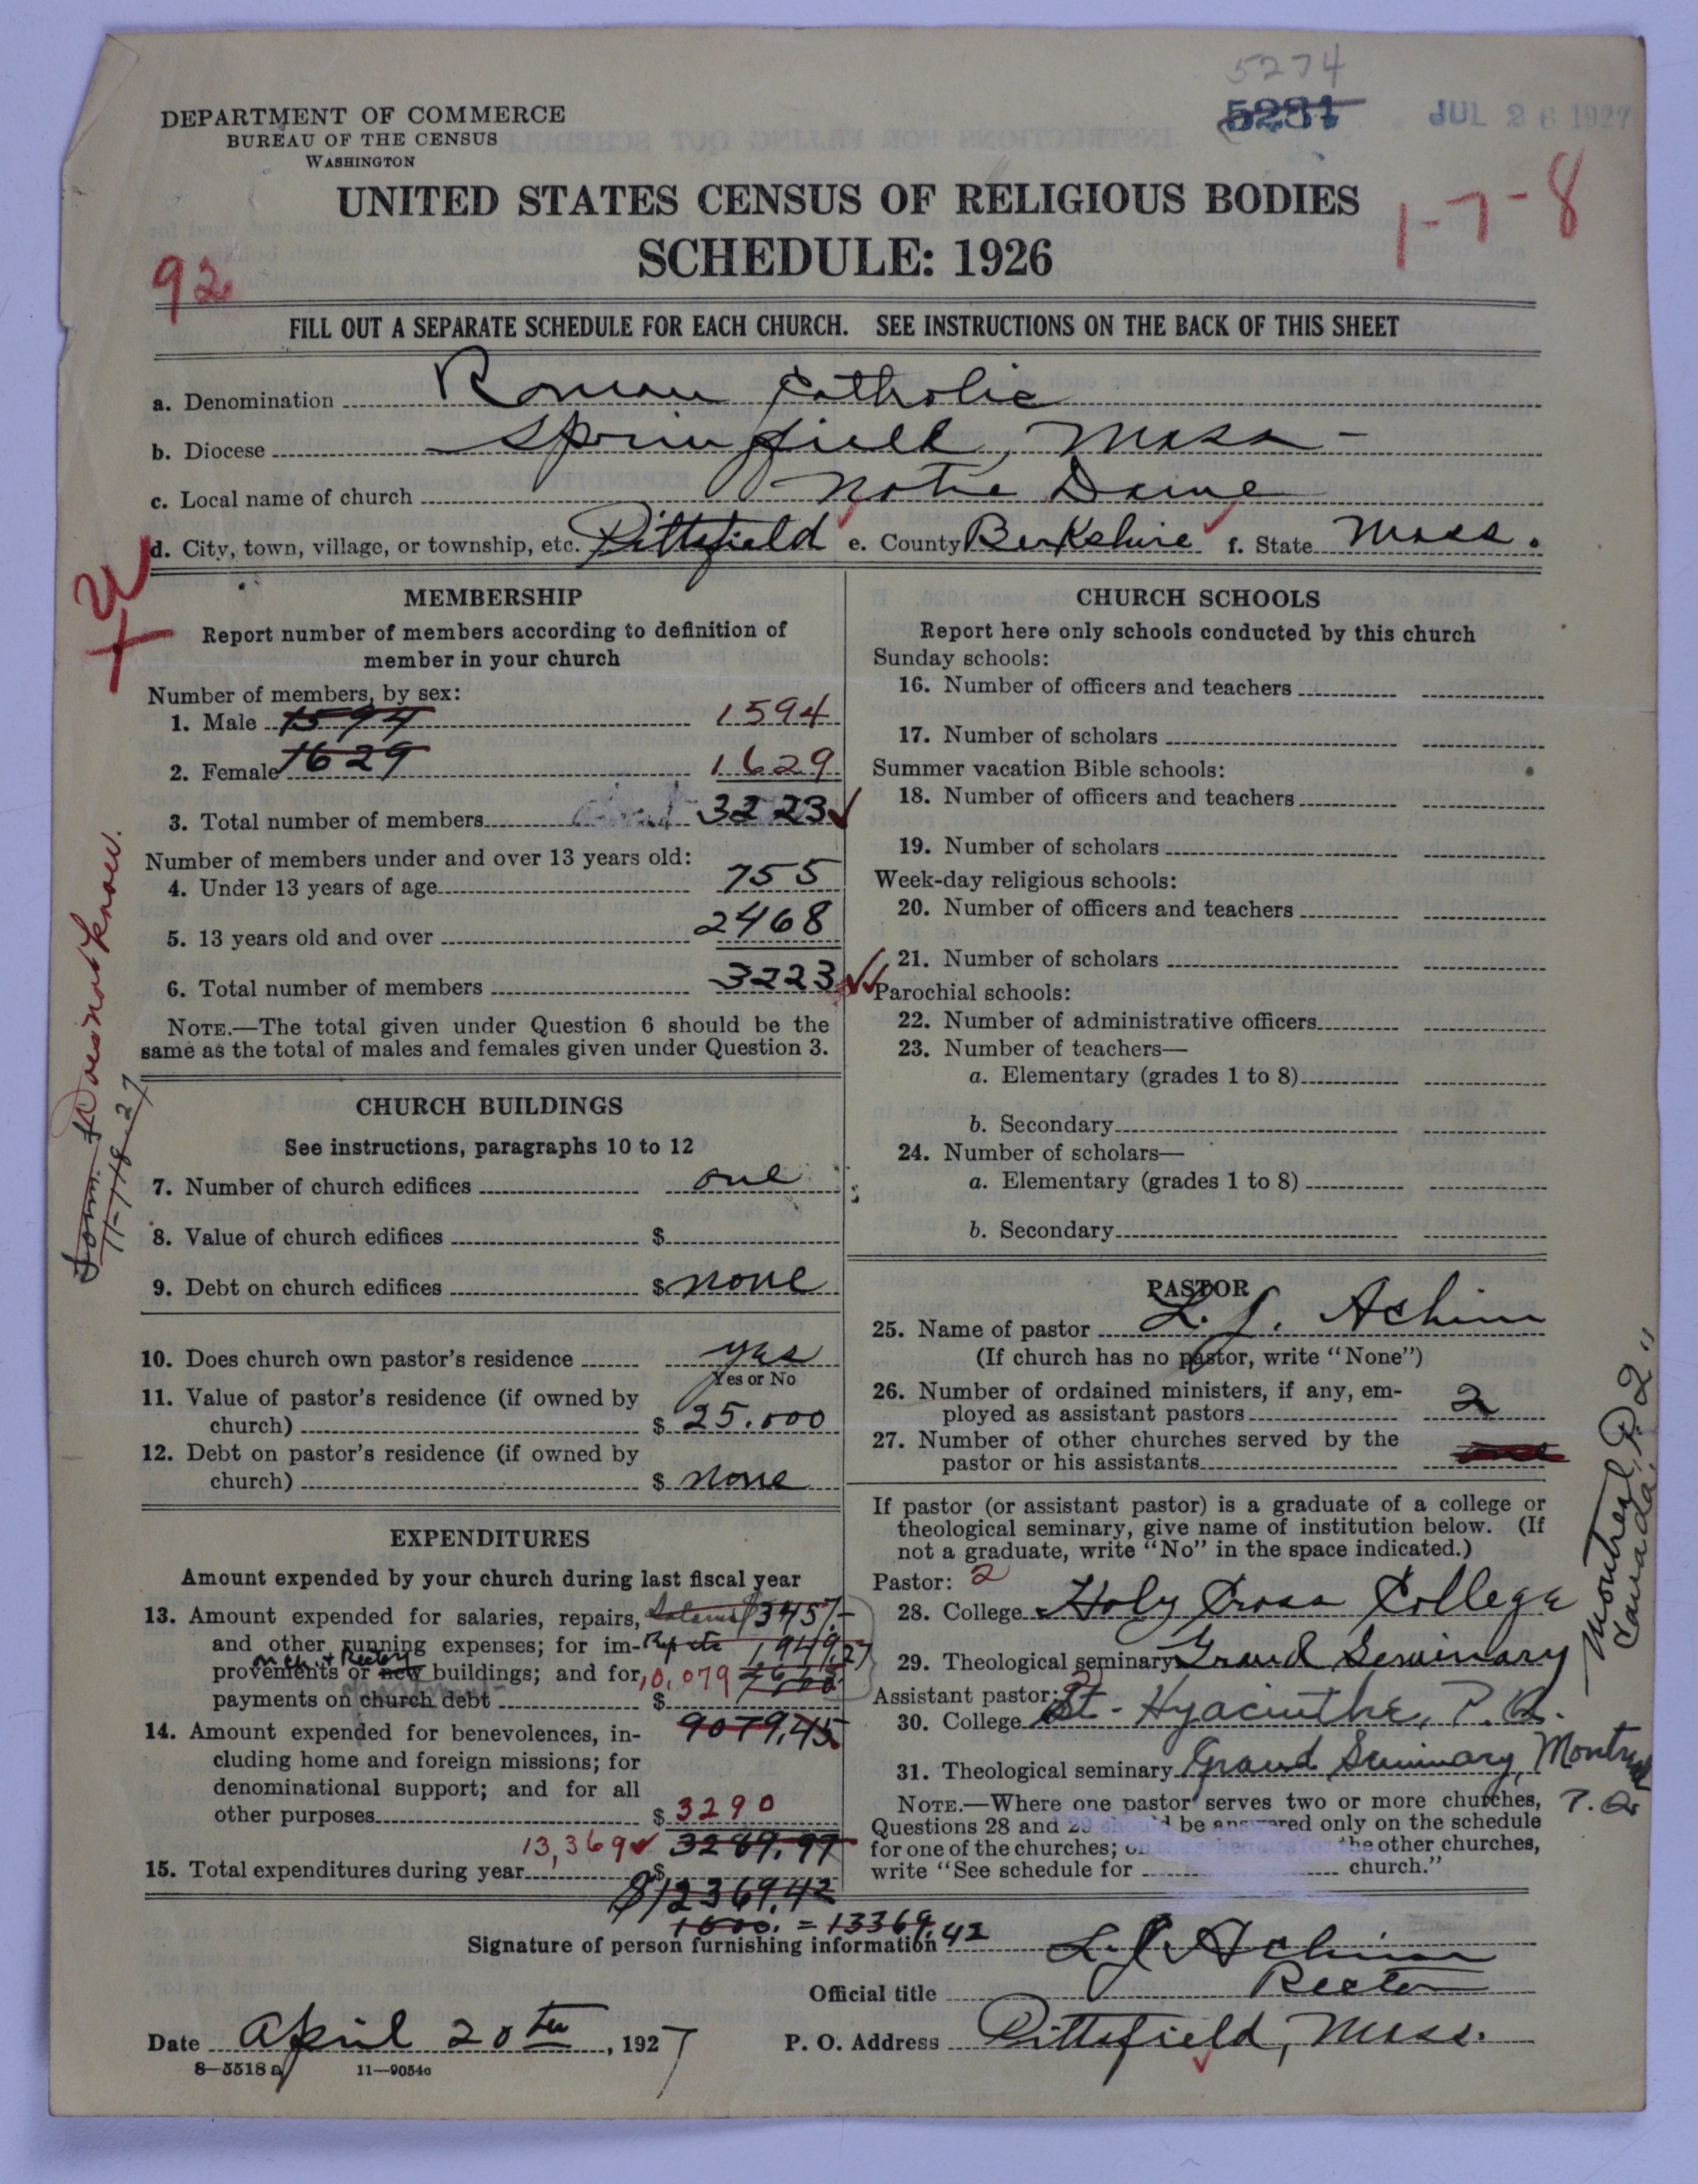 5274
5281
JUL 26 1927
DEPARTMENT OF COMMERCE
BUREAU OF THE CENSUS
WASHINGTON
UNITED STATES CENSUS OF RELIGIOUS BODIES
1-7-8
SCHEDULE: 1926
92
FILL OUT A SEPARATE SCHEDULE FOR EACH CHURCH. SEE INSTRUCTIONS ON THE BACK OF THIS SHEET
a. Denomination Roman Catholic
b. Diocese Springfield, Mass-
c. Local name of church Notre Dame
d. City, town, village, or township, etc. Pittsfield e. County Berkshire f. State Mass.
MEMBERSHIP
Report number of members according to definition of
member in your church
Number of members, by sex:
1. Male 1594 1594
2. Female 1629 1629
3. Total number of members 3223
Number of members under and over 13 years old:
4. Under 13 years of age 755
5. 13 years old and over 2468
6. Total number of members 3223
NOTE.—The total given under Question 6 should be the
same as the total of males and females given under Question 3.
Does not know.
11-18-27
CHURCH BUILDINGS
See instructions, paragraphs 10 to 12
7. Number of church edifices one
8. Value of church edifices $
9. Debt on church edifices $ none
10. Does church own pastor's residence yes
Yes or No
11. Value of pastor's residence (if owned by
church) $ 25.000
12. Debt on pastor's residence (if owned by
church) $ none
EXPENDITURES
Amount expended by your church during last fiscal year
13. Amount expended for salaries, repairs,
and other running expenses; for im-
provements or new buildings; and for 10,079
payments on church debt $
14. Amount expended for benevolences, in- 9079.45
cluding home and foreign missions; for
denominational support; and for all
other purposes $ 3290
13,369 3289.97
15. Total expenditures during year $
$12369.42
1000. = 13369.42
CHURCH SCHOOLS
Report here only schools conducted by this church
Sunday schools:
16. Number of officers and teachers
17. Number of scholars
Summer vacation Bible schools:
18. Number of officers and teachers
19. Number of scholars
Week-day religious schools:
20. Number of officers and teachers
21. Number of scholars
Parochial schools:
22. Number of administrative officers
23. Number of teachers—
a. Elementary (grades 1 to 8)
b. Secondary
24. Number of scholars—
a. Elementary (grades 1 to 8)
b. Secondary
PASTOR
25. Name of pastor L. J. Achim
(If church has no pastor, write "None")
26. Number of ordained ministers, if any, em-
ployed as assistant pastors 2
27. Number of other churches served by the
pastor or his assistants
If pastor (or assistant pastor) is a graduate of a college or
theological seminary, give name of institution below. (If
not a graduate, write "No" in the space indicated.)
Pastor: 2
28. College Holy Cross College
29. Theological seminary Grand Seminary
Montreal, P.Q.
Canada
Assistant pastor:
30. College St-Hyacinthe, P.Q.
31. Theological seminary Grand Seminary, Montreal
P.Q.
NOTE.—Where one pastor serves two or more churches,
Questions 28 and 29 should be answered only on the schedule
for one of the churches; on the other churches,
write "See schedule for church."
Signature of person furnishing information L. J. Achim
Official title Rector
Date April 20th, 1927 P. O. Address Pittsfield, Mass.
8—5518a 11—9054c